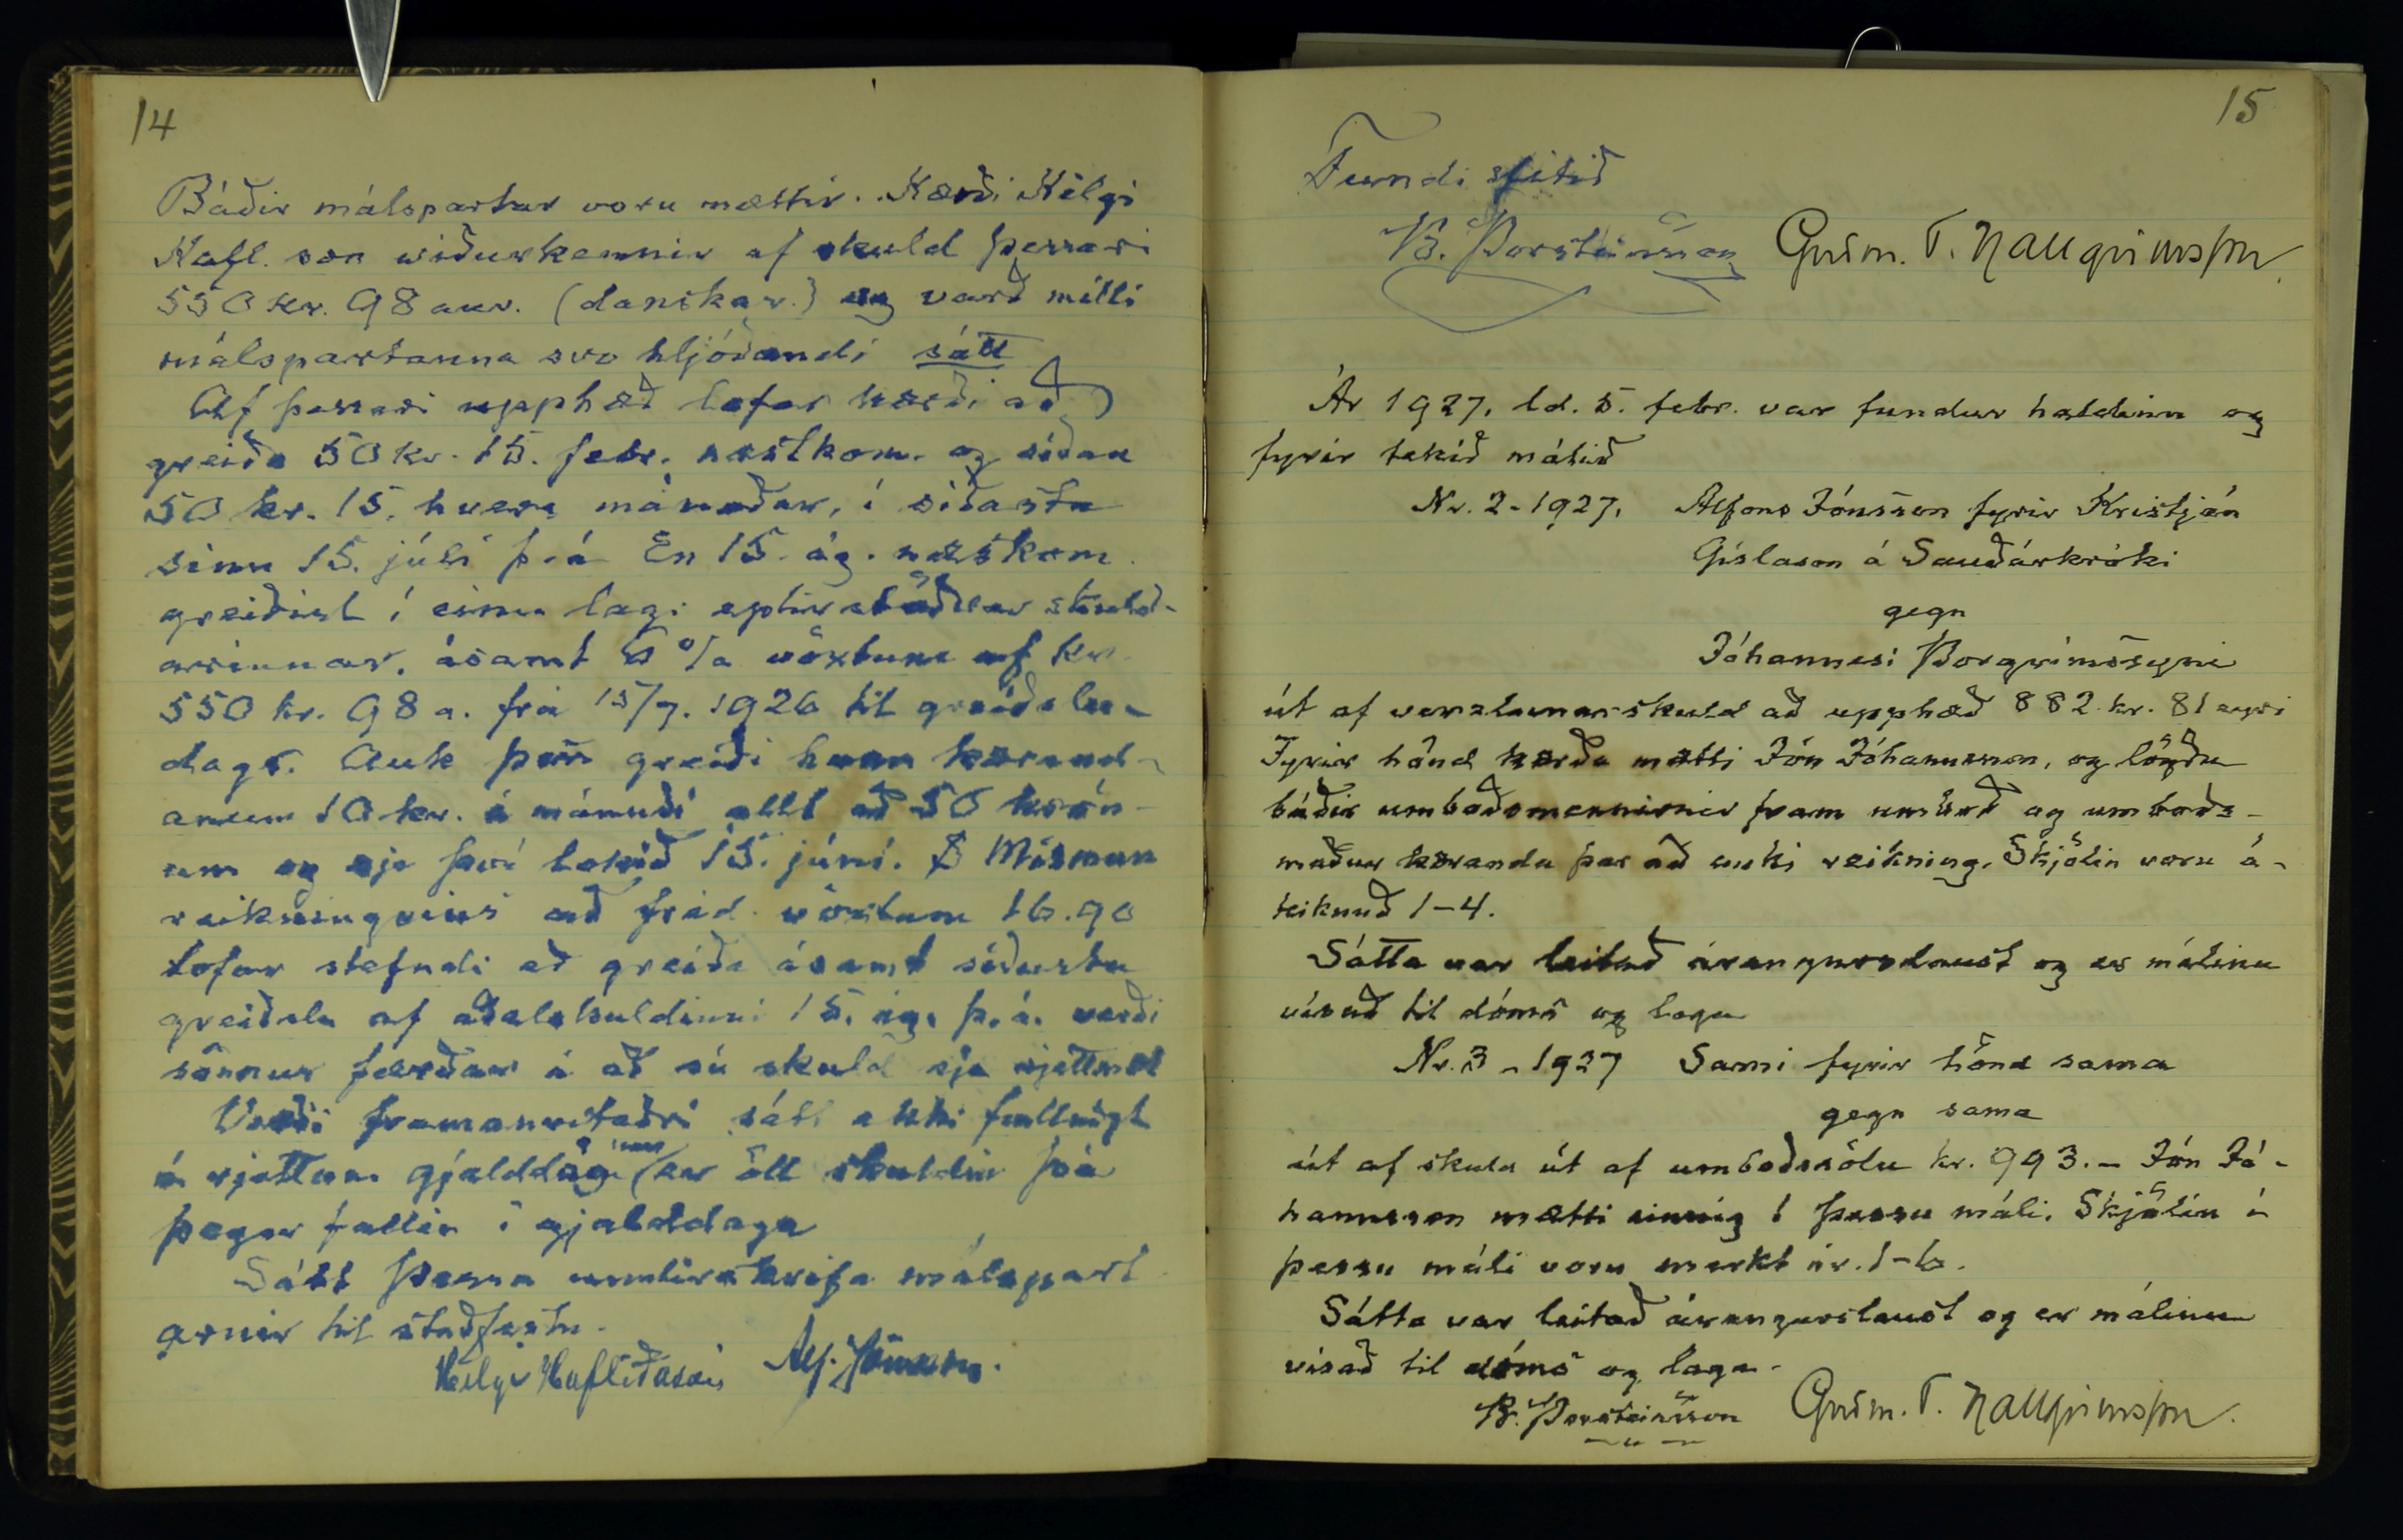 14
Báðir málspartar voru mættir. Kærði Helgi
Hafl.son viðurkennir af skuld þessari
550 kr. 98 aur. (danskar.) og varð milli
málspartanna svo hljóðandi sátt
Af þessari upphæð lofar kærði að
greiða 50 kr. 15. febr. næstkom. og síðan
50 kr. 15. hvers mánaðar, í síðasta
sinn 15. júlí þ.á. En 15. ág. næstkom.
greiðist í einu lagi eptirstöðvar skuld-
arinnar, ásamt 6% vöxtum af kr.
550 kr. 98 a. frá 15/7. 1926 til greiðslu-
dags. Auk þess greiði hann kærand-
anum 10 kr. á mánuði allt að 50 krón-
um og sje því lokið 15. júní. Mismun
reikningsins að frád. vöxtum 16.90
lofar stefndi að greiða ásamt síðustu
greiðslu af aðalskuldinni 15. ág. þ.á. verði
sönnur færðar á að sú skuld sje rjettmæt
Verði framanritaðri sátt ekki fullnægt
á rjettum gjalddögunum er öll skuldin þá
þegar fallin í gjalddaga
Sátt þessa undirskrifa málspart
arnir til staðfestu.
Helgi Hafliðason Alf. Jónsson.
15
Fundi slitið
B. Þorsteinsson Guðm. T. Hallgrímsson
Ár 1927, ld. 5. febr. var fundur haldinn og
fyrir tekið málið
Nr. 2 - 1927. Alfons Jónsson fyrir Kristján
Gíslason á Sauðárkróki
gegn
Jóhannesi Þorgrímssyni
út af verzlunarskuld að upphæð 882 kr. 81 eyri
Fyrir hönd kærða mætti Jón Jóhannesson, og lögðu
báðir umboðsmennirnir fram umboð og umboðs-
maður kæranda þar að auki reikning. Skjölin voru á-
teiknuð 1-4.
Sátta var leitað árangurslaust og er málinu
vísað til dóms og laga
Nr. 3 - 1927 Sami fyrir hönd sama
gegn sama
út af skuld út af umboðssölu kr. 993.- Jón Jó-
hannsson mætti einnig í þessu máli. Skjölin í
þessu máli voru merkt nr. 1-6.
Sátta var leitað árangurslaust og er málinu
vísað til dóms og laga.
B. Þorsteinsson Guðm. T. Hallgrímsson.